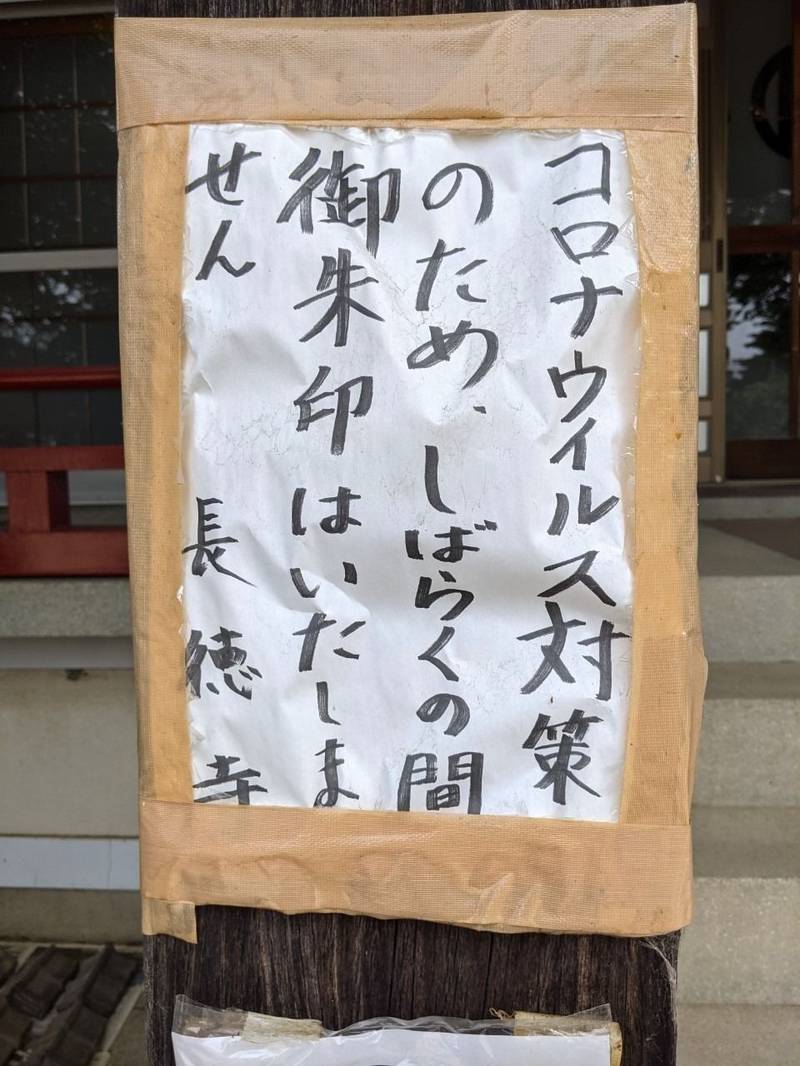 コロナウイルス対策
のため、しばらくの間
御朱印はいたしま
せん　長徳寺